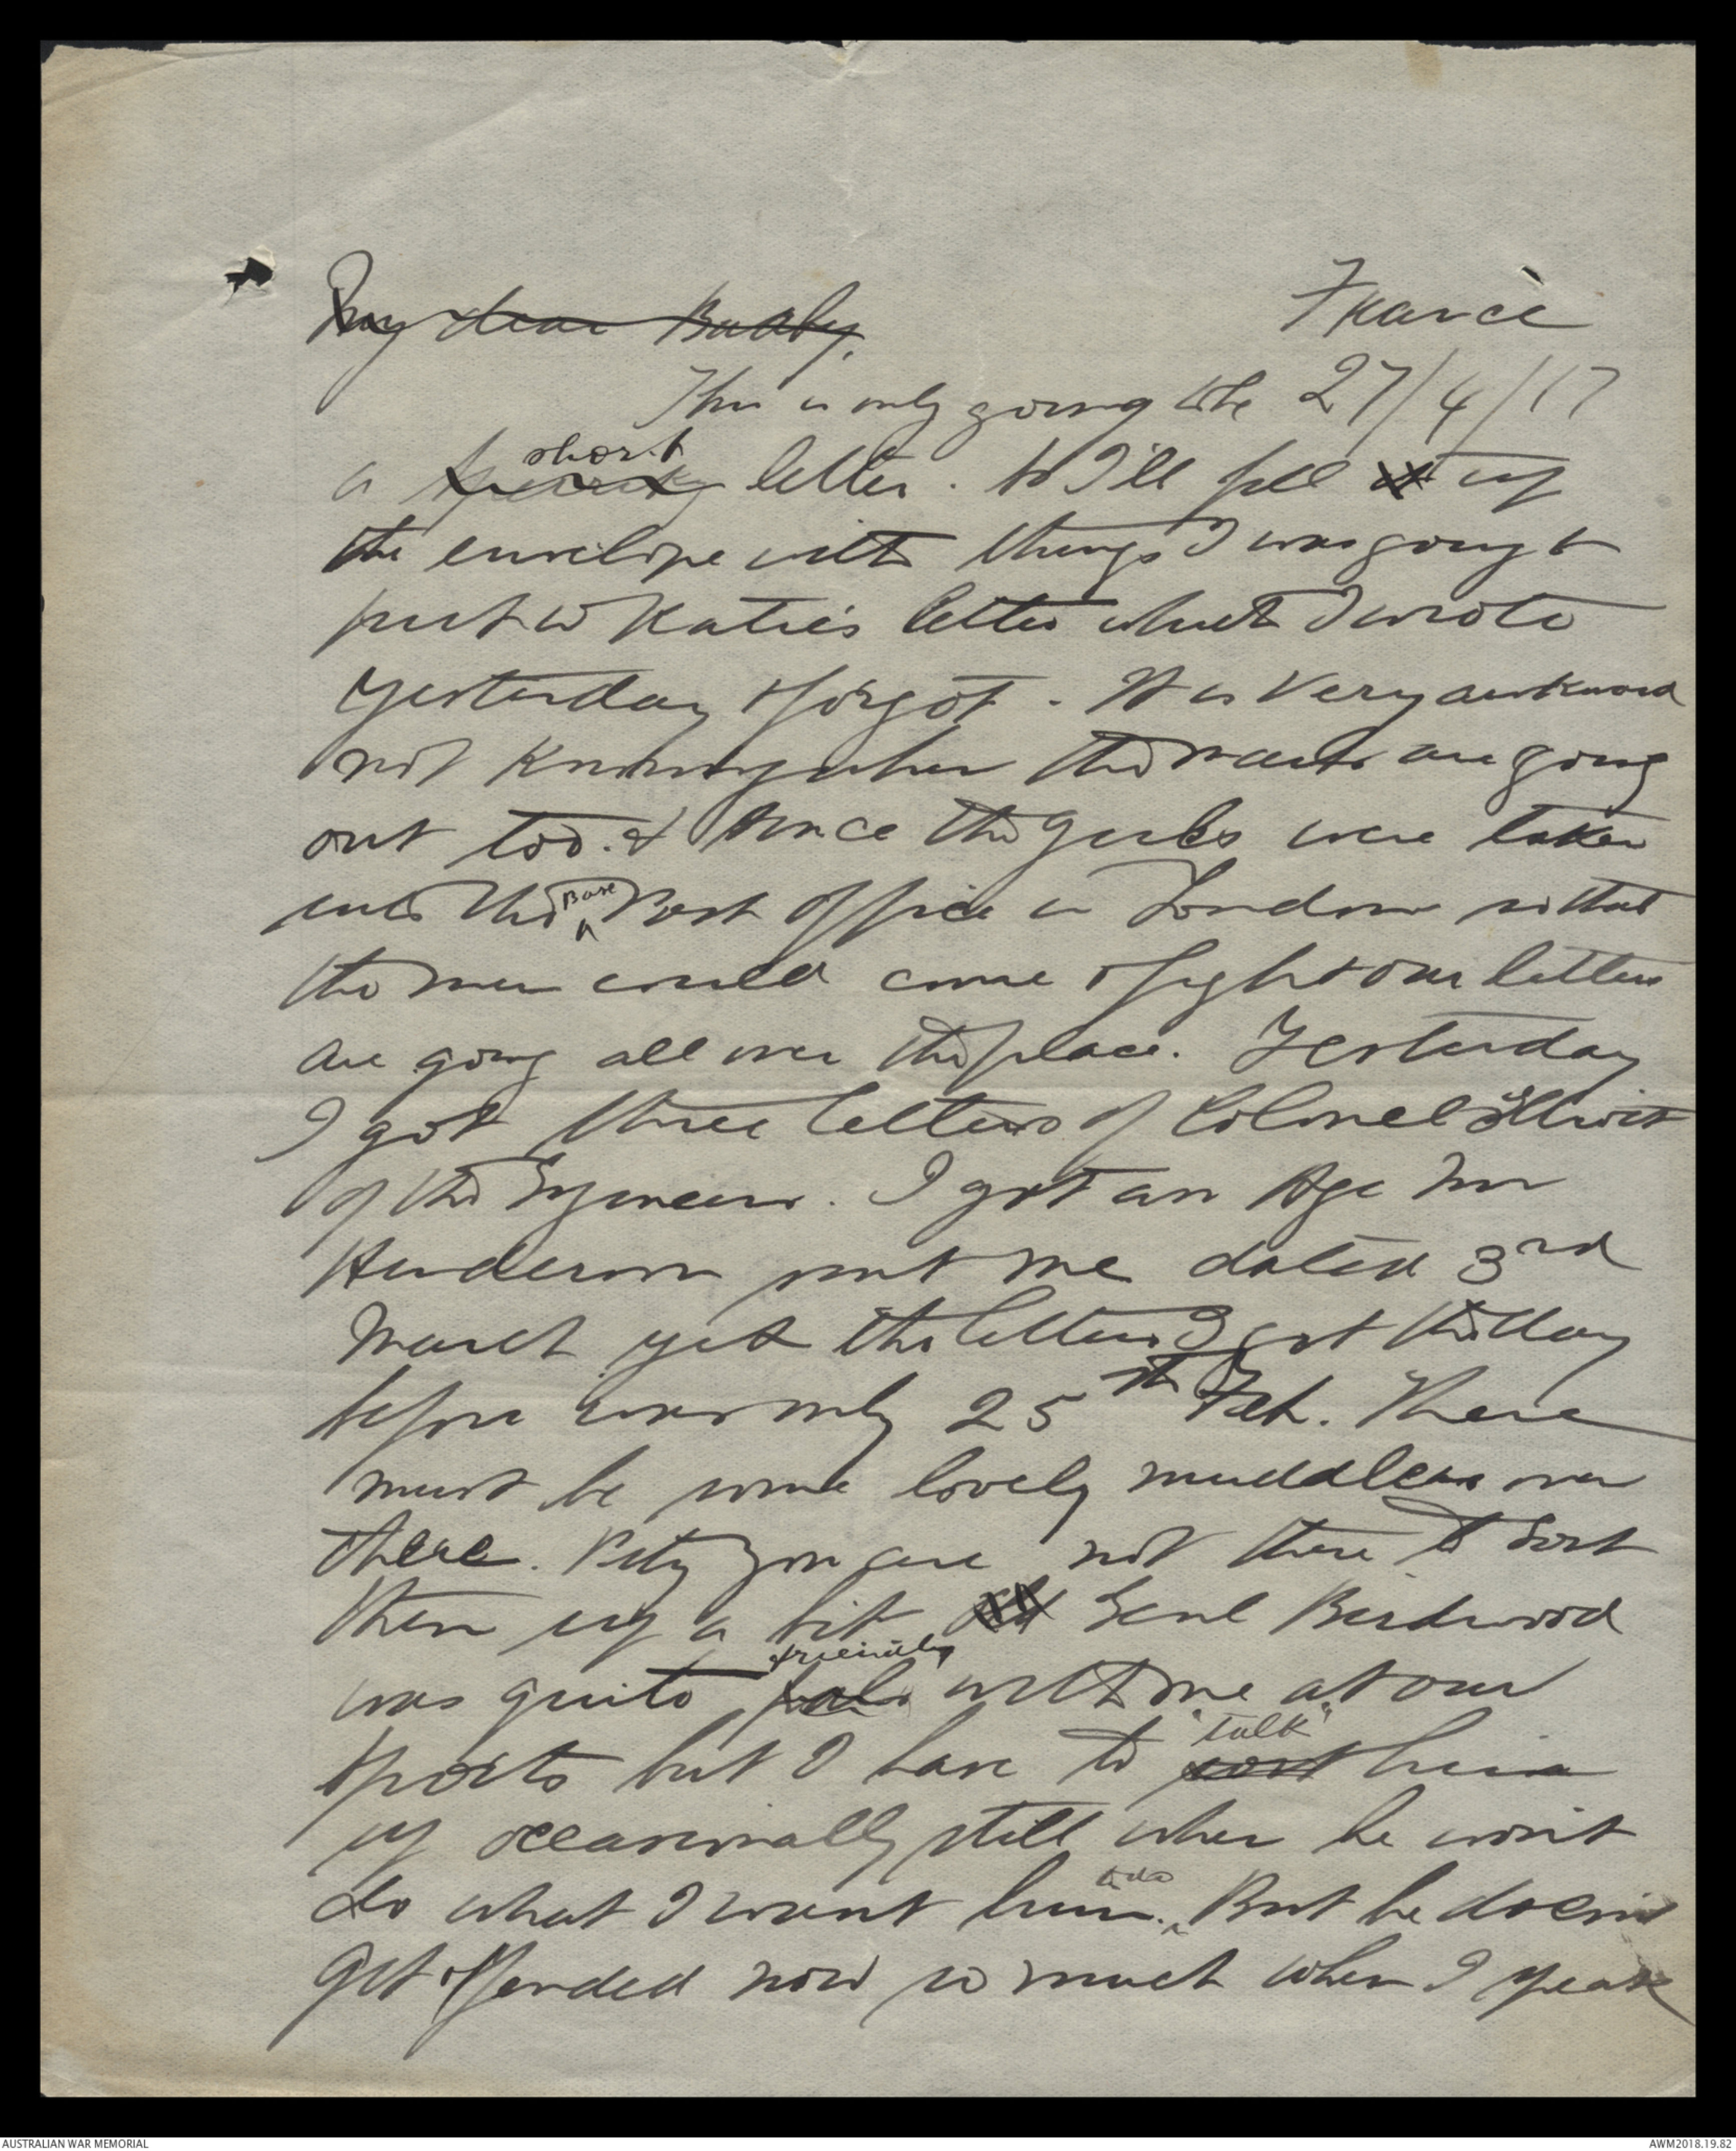 My dear Baaby. France
This is only going to be 27/4/17
a short letter. so I'll fill up
the envelope with things I was going to
put in Katie's letter which I wrote
yesterday & forgot. It is Very awkward
not knowing when the mails are going
out too. & since the girls were taken
into the Base Post Office in London so that
the men could come & fight our letters
are going all over the place. Yesterday
I got three letters of Colonel Elliott
of the Engineers. I got an Age Mr
Henderson sent me dated 3rd
March yet the letters I got the day
before were only 25th Feb. There
must be some lovely muddlers over
there. Pity you are not there to sort
them up a bit Genl Birdwood
was quite friendly with me at our
sports but I have to "talk" him
up occasionally still when he won't
do what I want him to do. But he doesn't
get offended now so much when I speak
AUSTRALIAN WAR MEMORIAL AWM2018.19.82